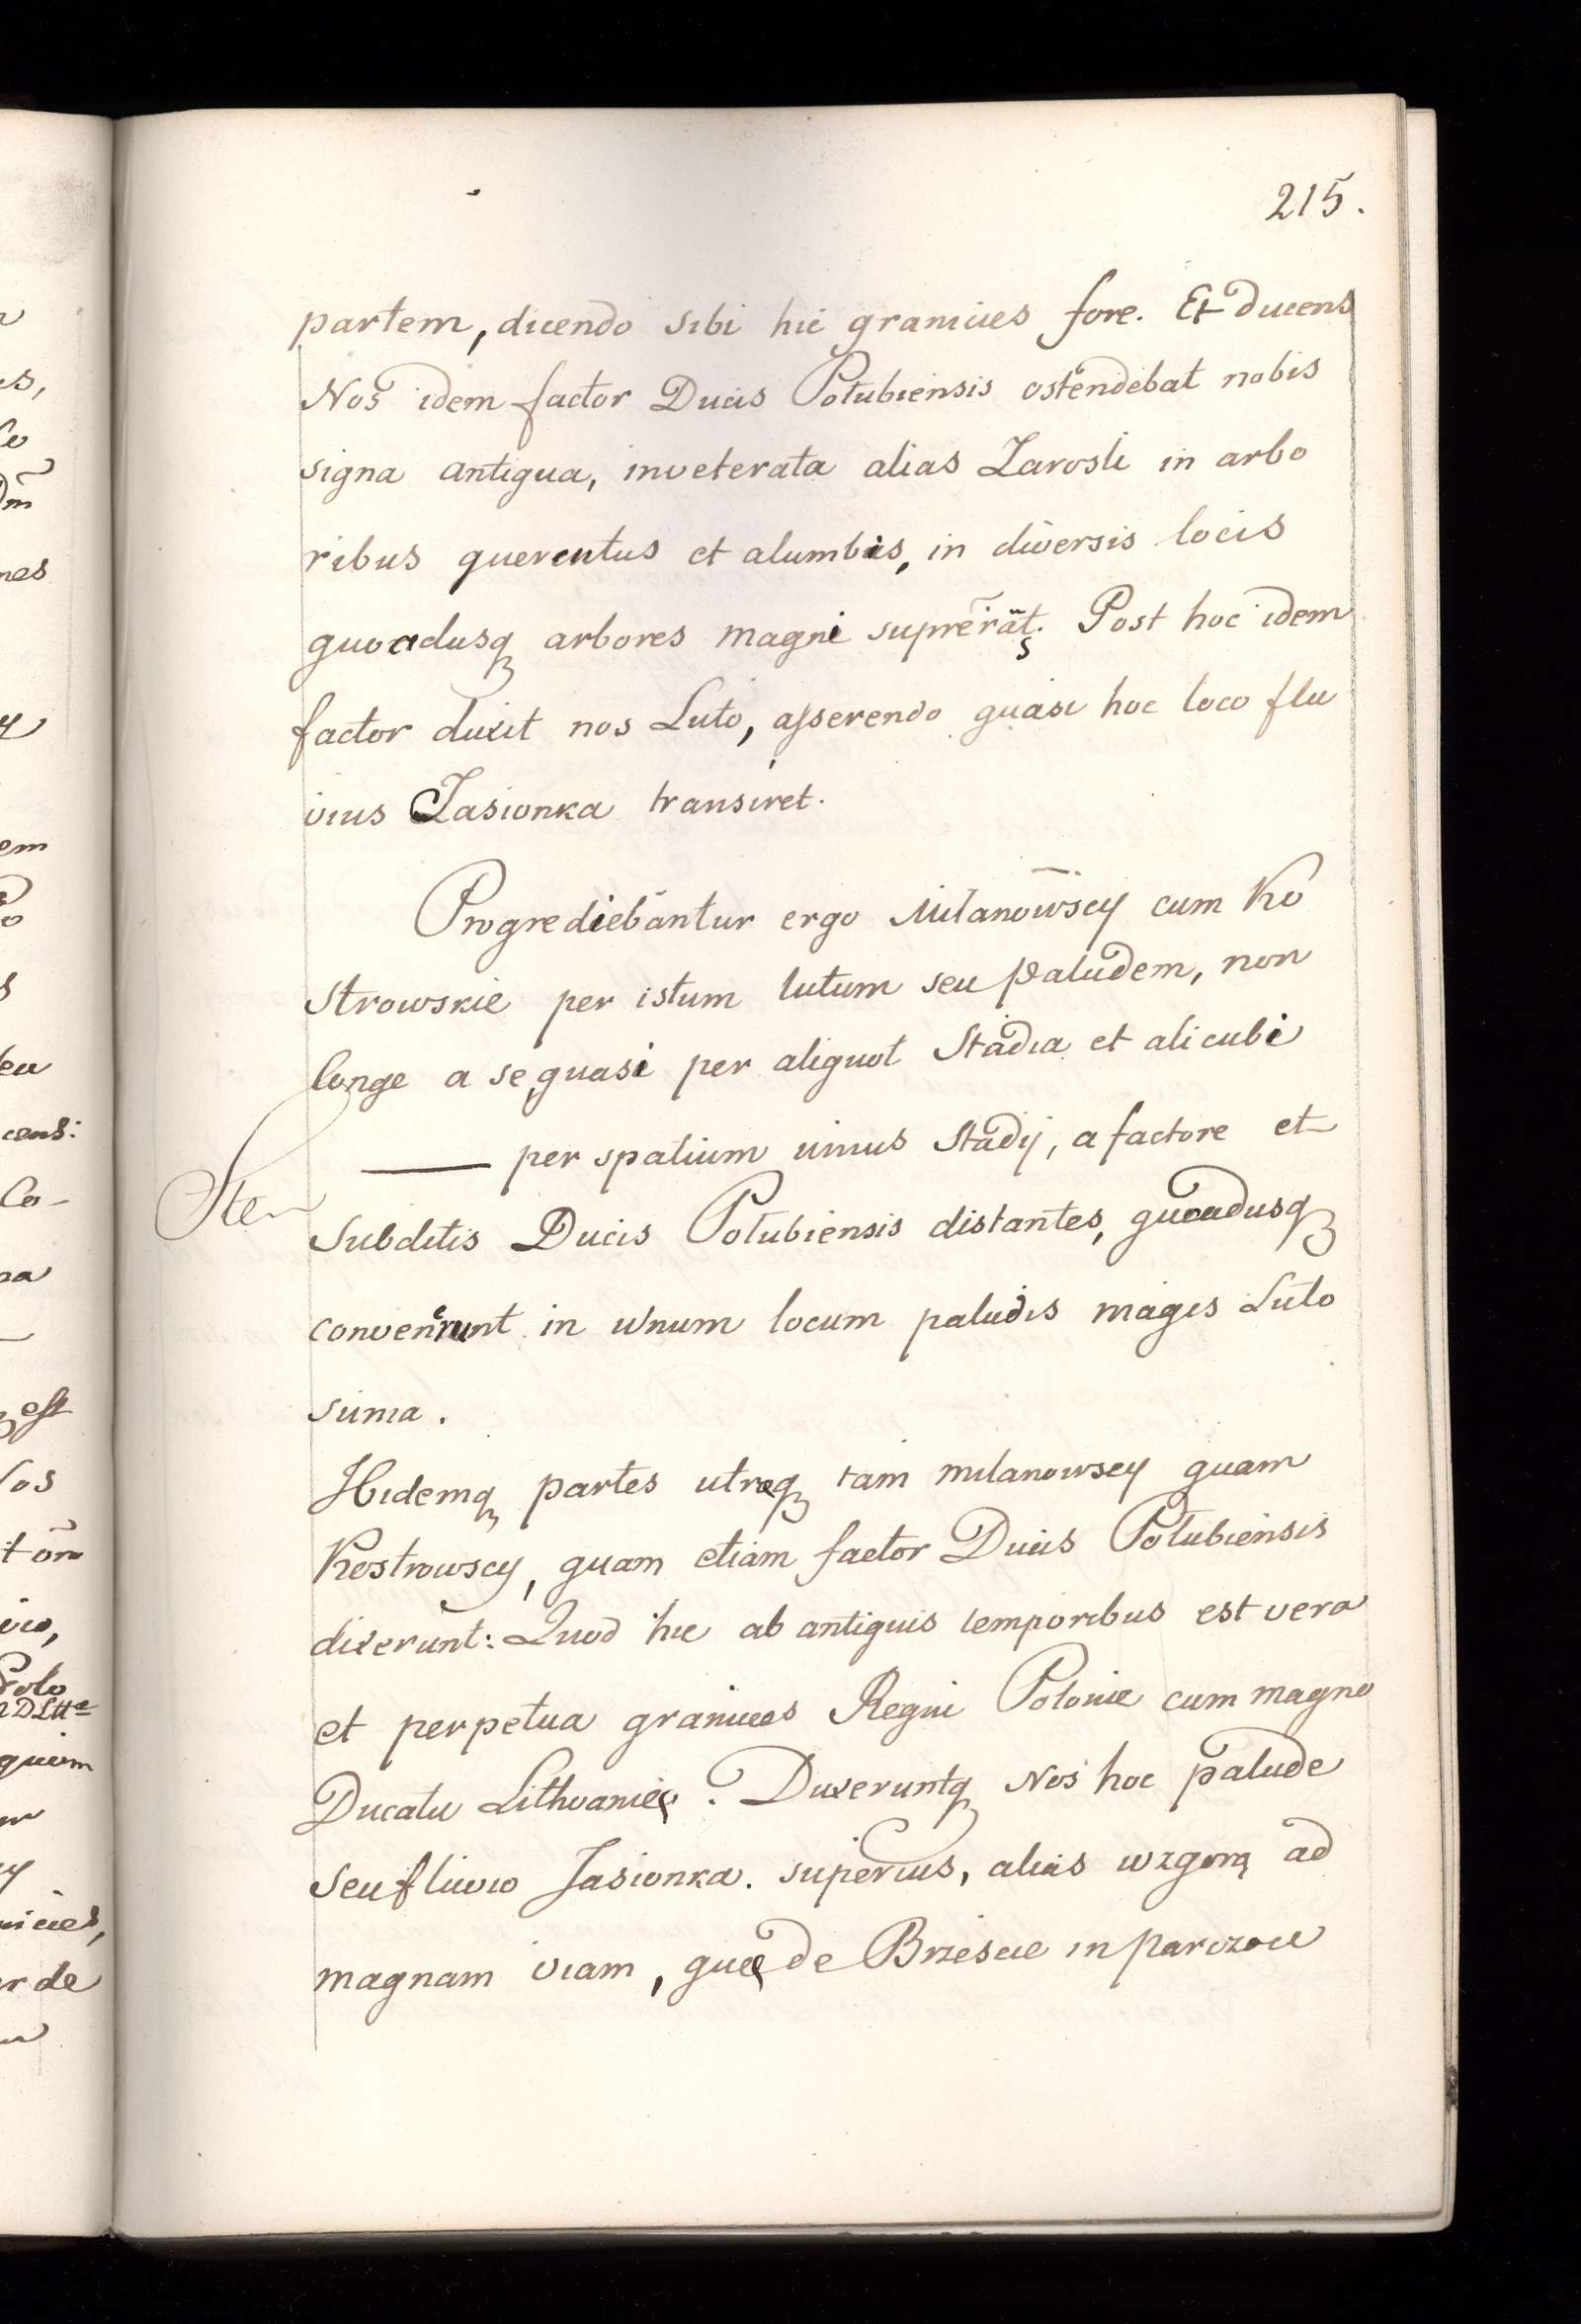 215.
partem, dicendo sibi hic granicies fore. Et ducens
Nos idem factor Ducis Połubiensis ostendebat nobis
signa antiqua, inveterata alias Zarosli in arbo
ribus quercutus et alumbis, in diversis locis
quoadusq arbores magni suprerāt. Post hoc idem
factor duxit nos Luto, asserendo quasi hoc loco flu
vius Jasionka transiret.
Progrediebantur ergo Miłanowscy cum Ko
strowskie per istum lutum seu paludem, non
longe a se, quasi per aliquot Stadia et alicubi
—— per spatium unius Stadij, a factore et
Subditis Ducis Połubiensis distantes, quoadusq
convenerunt in unum locum paludis magis Luto
suma.
Ibidemq partes utreq tam miłanowscy quam
Kostrowscy, quam etiam factor Ducis Połubiensis
dixerunt: Quod hic ab antiquis temporibus est vera
et perpetua granicies Regni Polonie cum magno
Ducatu Lithvanię. Duxeruntq Nos hoc palude
seu fluvio Jasionka. superius, alias wzgorą ad
magnam viam, quę de Brzescie in parczow